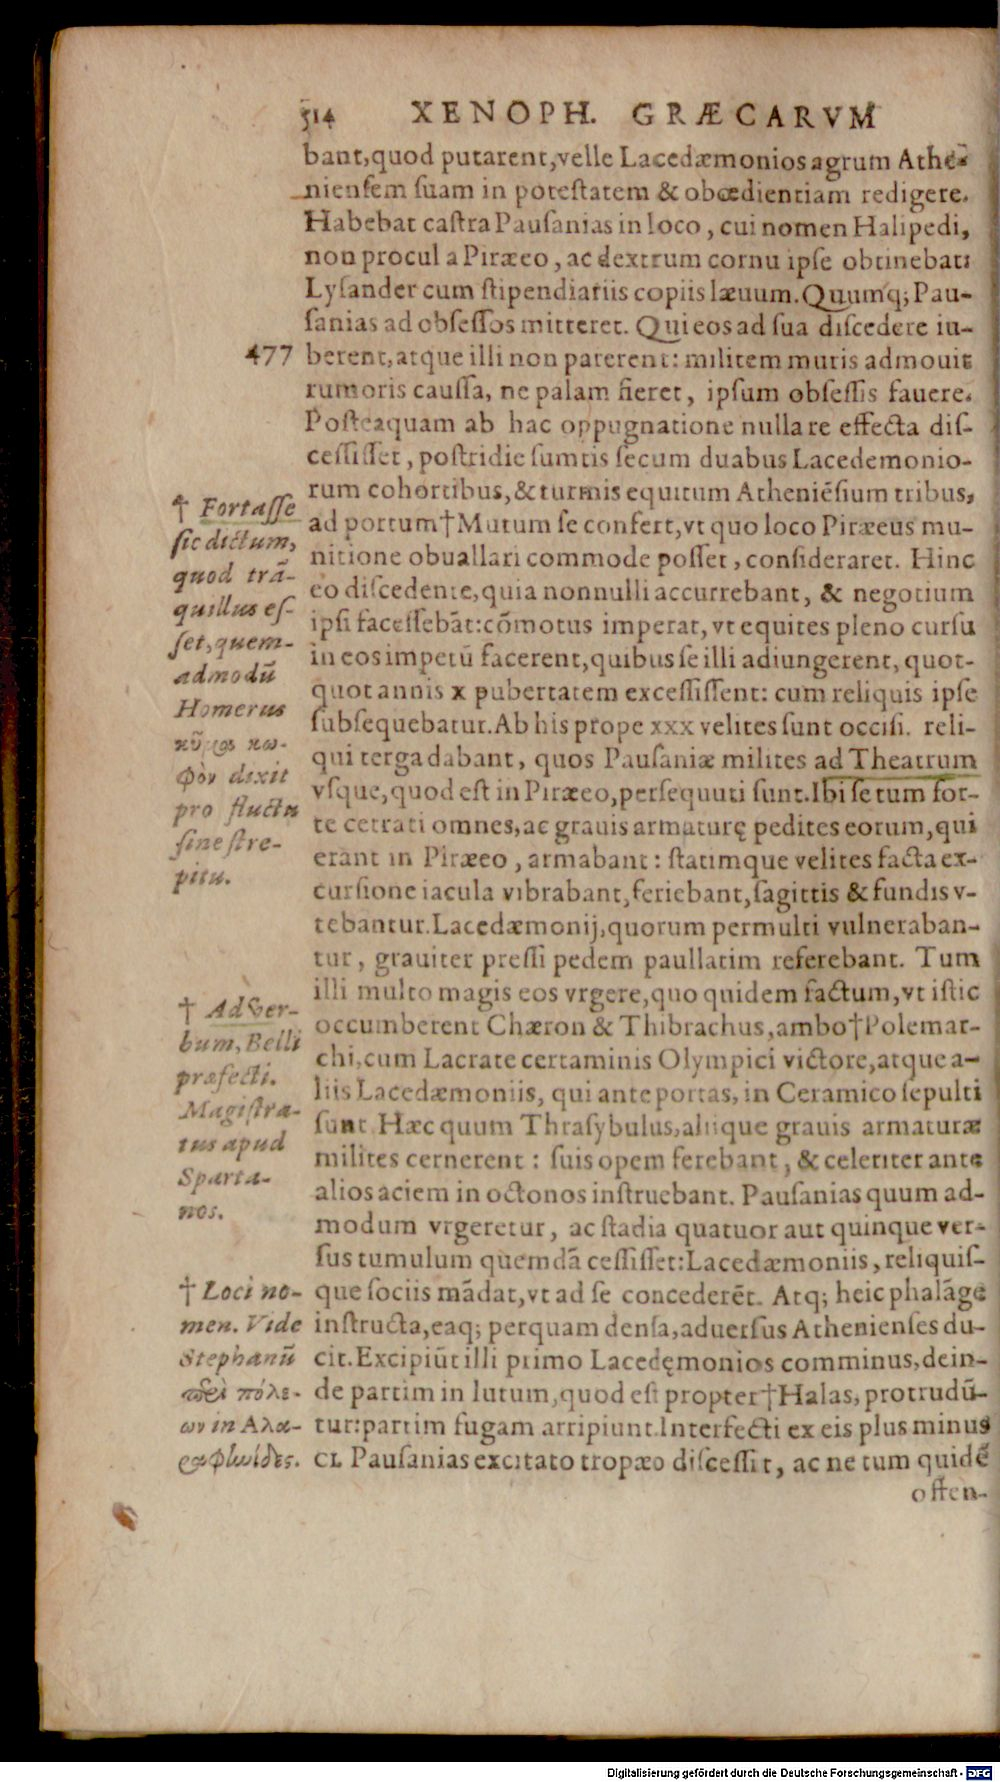 514 XENOPH. GRÆCARVM
bant,quod putarent,velle Lacedæmonios agrum Athe-
niensem suam in potestatem & obœdientiam redigere.
Habebat castra Pausanias in loco, cui nomen Halipedi,
non procul a Piræeo, ac dextrum cornu ipse obtinebat:
Lysander cum stipendiariis copiis læuum. Quumq; Pau-
sanias ad obsessos mitteret. Qui eos ad sua discedere iu-
477 berent,atque illi non parerent: militem muris admouit
rumoris caussa, ne palam fieret, ipsum obsessis fauere.
Posteaquam ab hac oppugnatione nulla re effecta dis-
cessisset, postridie sumtis secum duabus Lacedemonio-
rum cohortibus,& turmis equitum Atheniēsium tribus,
ad portum†Mutum se confert,vt quo loco Piræeus mu-
nitione obuallari commode posset, consideraret. Hinc
eo discedente,quia nonnulli accurrebant, & negotium
ipsi facessebāt:cōmotus imperat, vt equites pleno cursu
in eos impetū facerent,quibus se illi adiungerent, quot-
quot annis x pubertatem excessissent: cum reliquis ipse
subsequebatur.Ab his prope xxx velites sunt occisi. reli-
qui terga dabant, quos Pausaniæ milites ad Theatrum
vsque,quod est in Piræeo,persequuti sunt.Ibi se tum for-
te cetrati omnes,ac grauis armaturę pedites eorum,qui
erant in Piræeo, armabant: statimque velites facta ex-
cursione iacula vibrabant,feriebant,sagittis & fundis v-
tebantur.Lacedæmonij,quorum permulti vulneraban-
tur, grauiter pressi pedem paullatim referebant. Tum
illi multo magis eos vrgere,quo quidem factum,vt istic
occumberent Chæron & Thibrachus,ambo†Polemar-
chi,cum Lacrate certaminis Olympici victore,atque a-
liis Lacedæmoniis, qui ante portas, in Ceramico sepulti
sunt. Hæc quum Thrasybulus,aliique grauis armaturæ
milites cernerent: suis opem ferebant, & celeriter ante
alios aciem in octonos instruebant. Pausanias quum ad-
modum vrgeretur, ac stadia quatuor aut quinque ver-
sus tumulum quemdā cessisset:Lacedæmoniis, reliquis-
que sociis mādat,vt ad se concederēt. Atq; heic phalāge
instructa,eaq; perquam densa,aduersus Athenienses du-
cit.Excipiūt illi primo Lacedęmonios comminus,dein-
de partim in lutum,quod est propter†Halas, protrudū-
tur:partim fugam arripiunt.Interfecti ex eis plus minus
CL Pausanias excitato tropæo discessit, ac ne tum quidē
osten-
† Fortasse
sic dictum,
quod trā-
quillus es-
set,quem-
admodū
Homerus
κῦμα κω-
φὸν dixit
pro fluctu
sine stre-
pitu.
† Ad ver-
bum, Belli
præfecti.
Magistra-
tus apud
Sparta-
nos.
† Loci no-
men. Vide
Stephanū
περὶ πόλε-
ων in Ἀλα-
ὶ Ἀραφηνίδες.
Digitalisierung gefördert durch die Deutsche Forschungsgemeinschaft - DFG